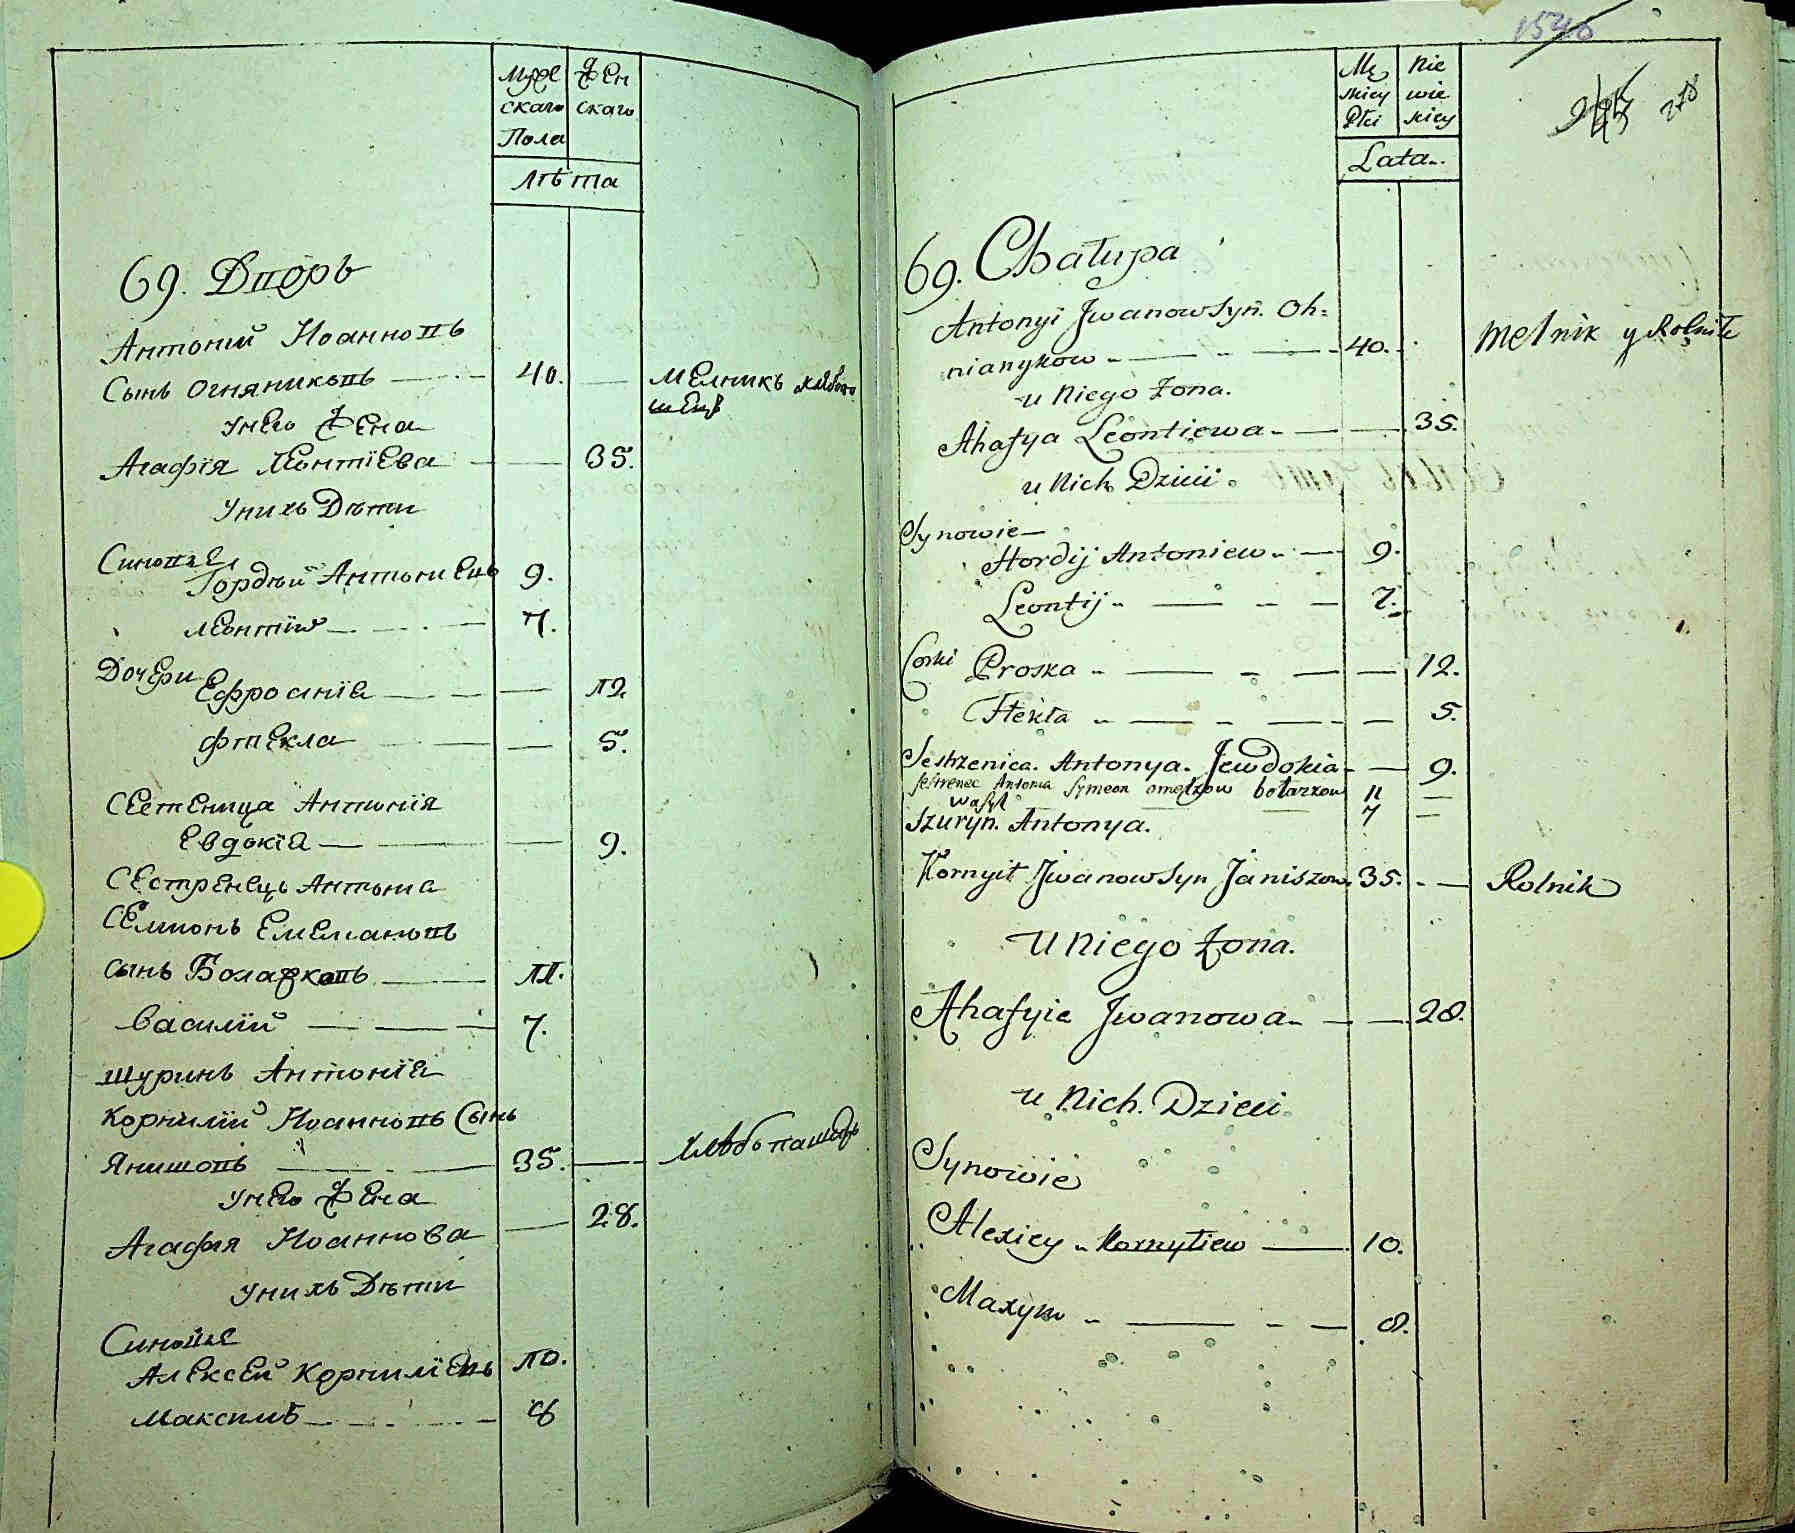 Муже Жен
скаго скаго
Пола
Лѣта
69. Дворъ
Антоній Иоанновъ
Сынъ Огняниковъ 40. Мелникъ хлѣбопа
шецъ
Унего Жена
Агафія Леонтіева 35.
Унихъ Дѣти
Синовье
Гордѣй Антоніевъ 9.
Леонтій 7.
Дочери
Ефросинія 12
Фтекла 5.
Сестеница Антонія
Евдокія 9.
Сестренецъ Антоніа
Семионъ Емелиановъ
сынъ Боларковъ 11.
Василій 7.
шуринъ Антонія
Корнилій Иоанновъ Сынъ
Янишовъ 35. Хлѣбопашецъ
Унего Жена
Агафия Иоаннова 28.
Унихъ Дѣти
Синовье
Алексей Корниліевъ 10.
Максимъ 8
1546
278
Mę Nie
skiey wie
Płci skiey
Lata
69. Chałupa
Antonyi Jwanow Syn. Oh=
nianykow 40. Melnik y Rolnik
u Niego Żona.
Ahafya Leontiewa 35.
u Nich Dzieci
Synowie
Hordij Antoniew 9.
Leontij 7.
Corki Proska 12.
Ftekła 5.
Sestrzenica Antonya. Jewdokia 9.
sestrenec Antonia Symeon omelkow bolarkow 11
wasyl 7
Szuryn. Antonya.
Kornyił Jwanow Syn Janiszow 35. Rolnik
U Niego Żona.
Ahafyie Jwanowa 28.
u Nich. Dzieci
Synowie
Alexiey Kornyłiew 10.
Maxym 8.